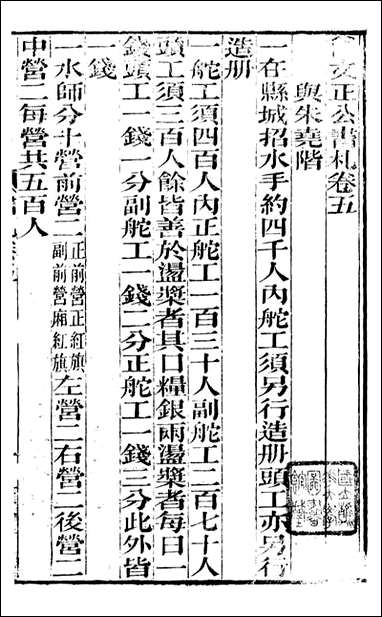 文正公書札卷五
與朱堯階
一在縣城招水手約四千人內舵工須另行造册頭工亦另行
造册
一舵工須四百人內正舵工一百三十人副舵工二百七十人
頭工須三百人餘皆善於盪槳者其口糧銀兩盪槳者每日一
錢頭工一錢一分副舵工一錢二分正舵工一錢三分此外皆
一錢
一水師分十營前營二正前營正紅旗副前營廂紅旗左營二右營二後營二
中營二每營共五百人